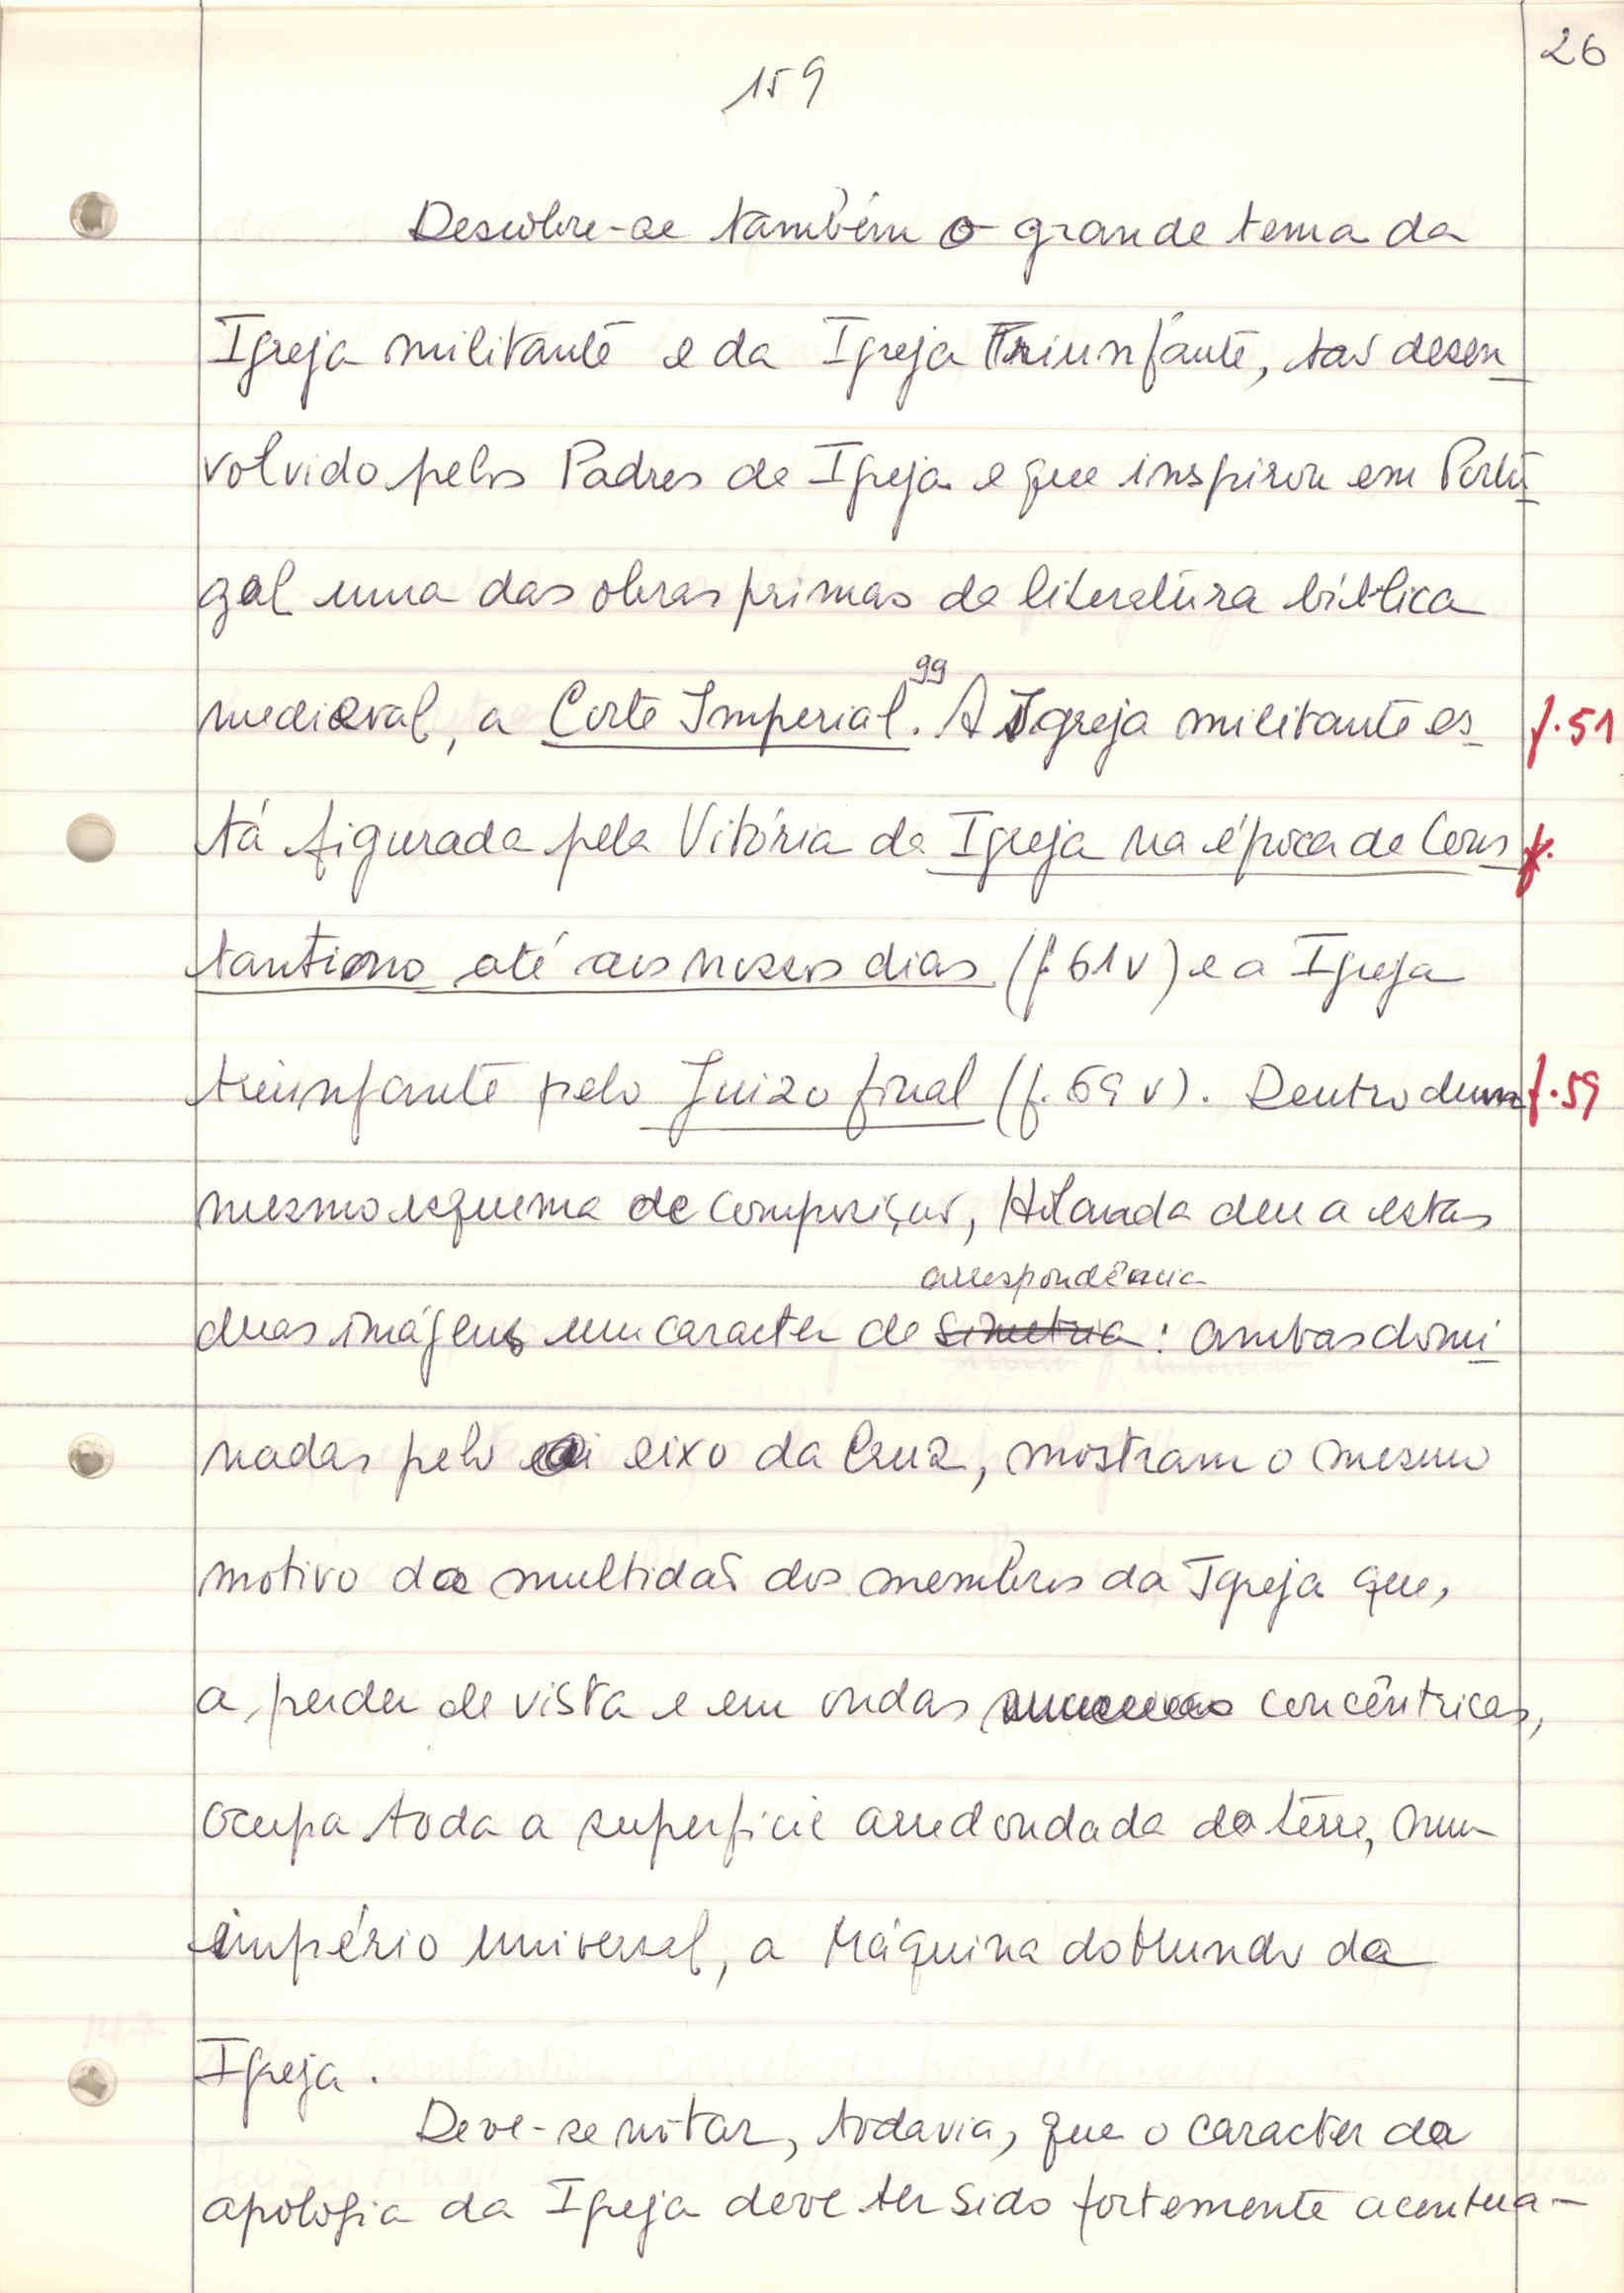 26
159
Descobre-se também o grande tema da
Igreja militante e da Igreja Triunfante, tão desen
volvido pelos Padres da Igreja e que inspirou em Portu
gal uma das obras primas da literatura bíblica
medieval, a Corte Imperial.99 A Igreja militante es f.51
tá figurada pela Vitória da Igreja na época de Cons f.
tantino até aos nossos dias (f. 61v) e a Igreja
triunfante pelo Juizo final (f. 69 v). Dentro dum f.59
mesmo esquema de composição, Holanda deu a estas
correspondência
duas imágens um caracter de simetria : ambas domi
nadas pelo eixo da Cruz, mostram o mesmo
motivo da multidão dos membros da Igreja que,
a perder de vista e em ondas concêntricas,
ocupa toda a superficie arredondada da terra, num
império universal, a Máquina do Mundo da
Igreja.
Deve-se notar, todavia, que o caracter da
apologia da Igreja deve ter sido fortemente acentua-